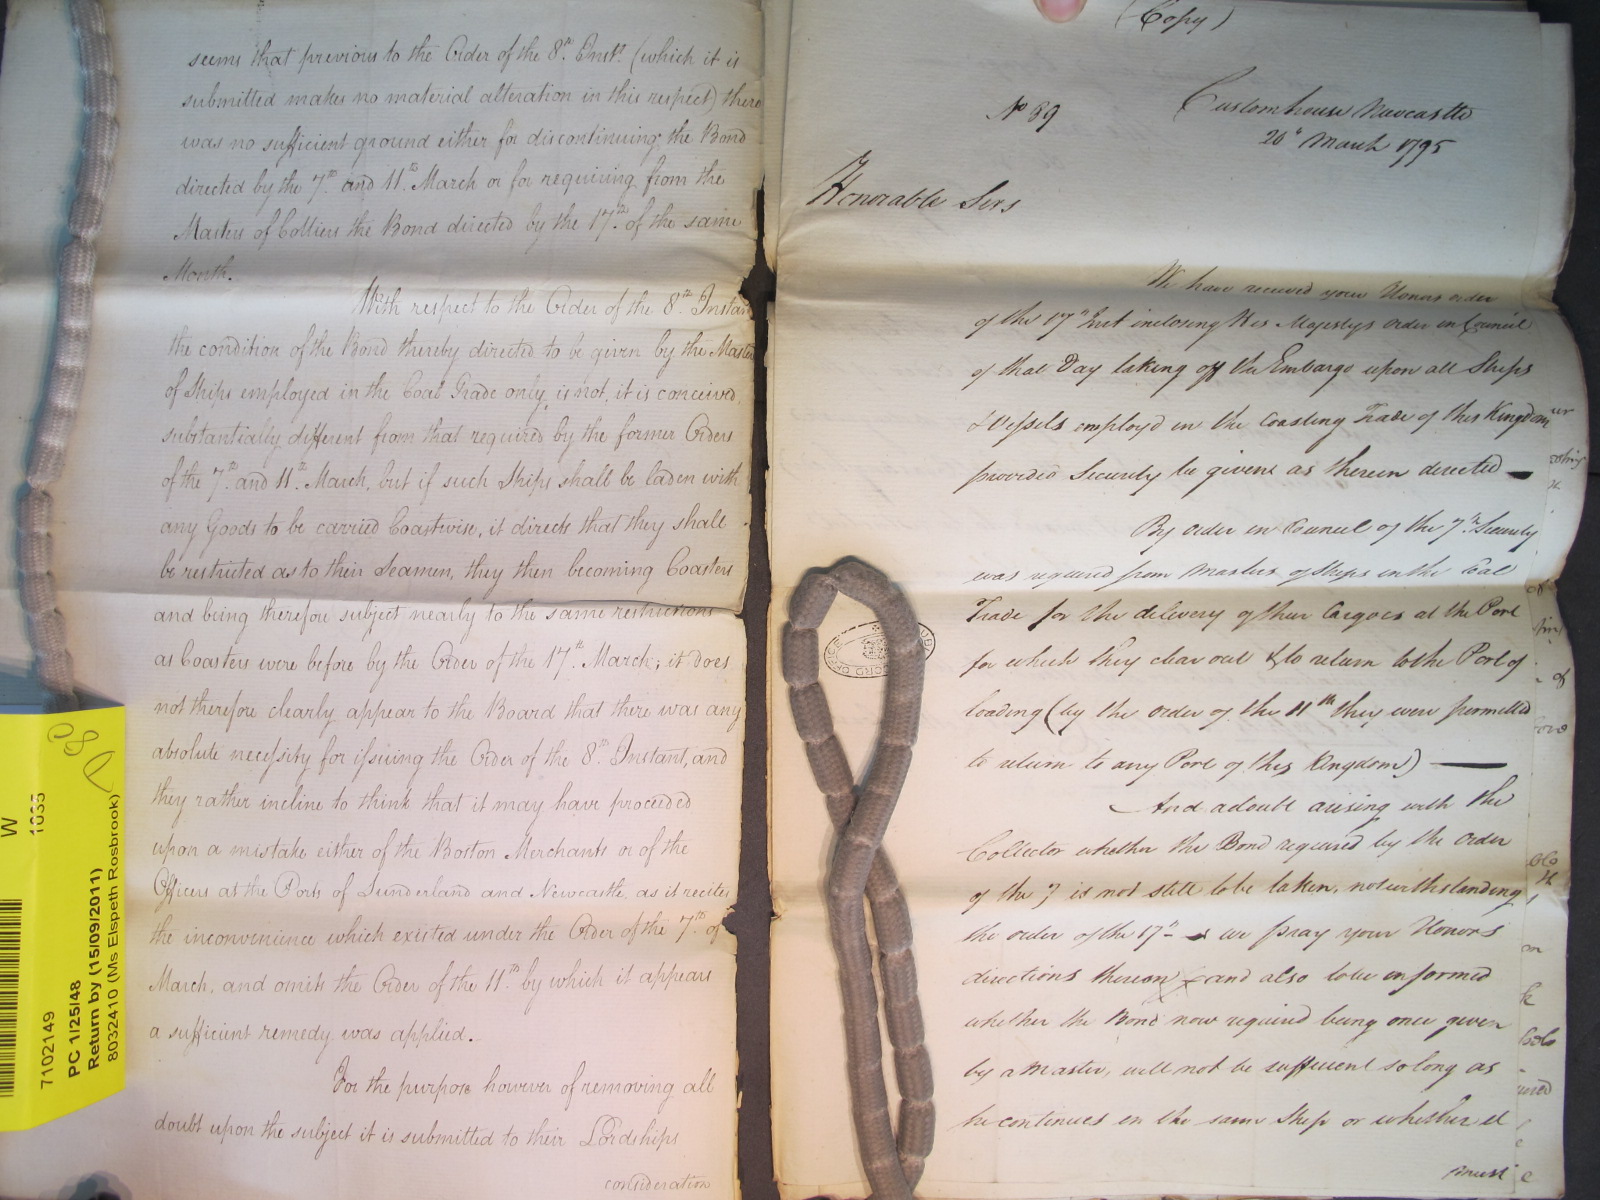 seems that previous to the Order of the 8th. Inst. (which it is
submitted makes no material alteration in this respect) there
was no sufficient ground either for discontinuing the Bond
directed by the 7th. and 11th. March or for requiring from the
Masters of Colliers the Bond directed by the 17th. of the same
Month.
With respect to the Order of the 8th. Instan
the condition of the Bond thereby directed to be given by the Maste
of Ships employed in the Coal Trade only, is not, it is conceived,
substantially different from that required by the former Orders
of the 7th. and 11th. March, but if such Ships shall be laden with
any Goods to be carried Coastwise, it directs that they shall
be restricted as to their Seamen, they then becoming Coasters
and being therefore subject nearly to the same restrictions
as Coasters were before by the Order of the 17th. March; it does
not therefore clearly appear to the Board that there was any
absolute necessity for issuing the Order of the 8th. Instant, and
they rather incline to think that it may have proceeded
upon a mistake either of the Boston Merchants or of the
Officers at the Ports of Sunderland and Newcastle, as it recites
the inconvenience which existed under the Order of the 7th. of
March, and omits the Order of the 11th. by which it appears
a sufficient remedy was applied.
For the purpose however of removing all
doubt upon the subject it is submitted to their Lordships
consideration
(Copy)
No 69
Customhouse Newcastle
20th March 1795
Honorable Sirs
We have received your Honors order
of the 17th Inst inclosing His Majesty's order in Council
of that Day taking off the Embargo upon all Ships
& Vessels employd in the Coasting Trade of this Kingdom
provided Security be given as therein directed —
By order in Council of the 7th. Security
was required from Masters of Ships in the Coal
Trade for the delivery of their Cargoes at the Port
for which they clear out & to return to the Port of
loading (by the order of the 11th they were permitted
to return to any Port of this Kingdom) —
And a doubt arising with the
Collector whether the Bond required by the order
of the 7 is not still to be taken, notwithstanding
the order of the 17th — we pray your Honors
directions thereon and also to be informed
whether the Bond now required being once given
by a Master, will not be sufficient so long as
he continues in the same Ship or whether it
must
RECORD OFFICE
W
1035
7102149
PC 1/25/48
Return by (15/09/2011)
8032410 (Ms Elspeth Rosbrook)